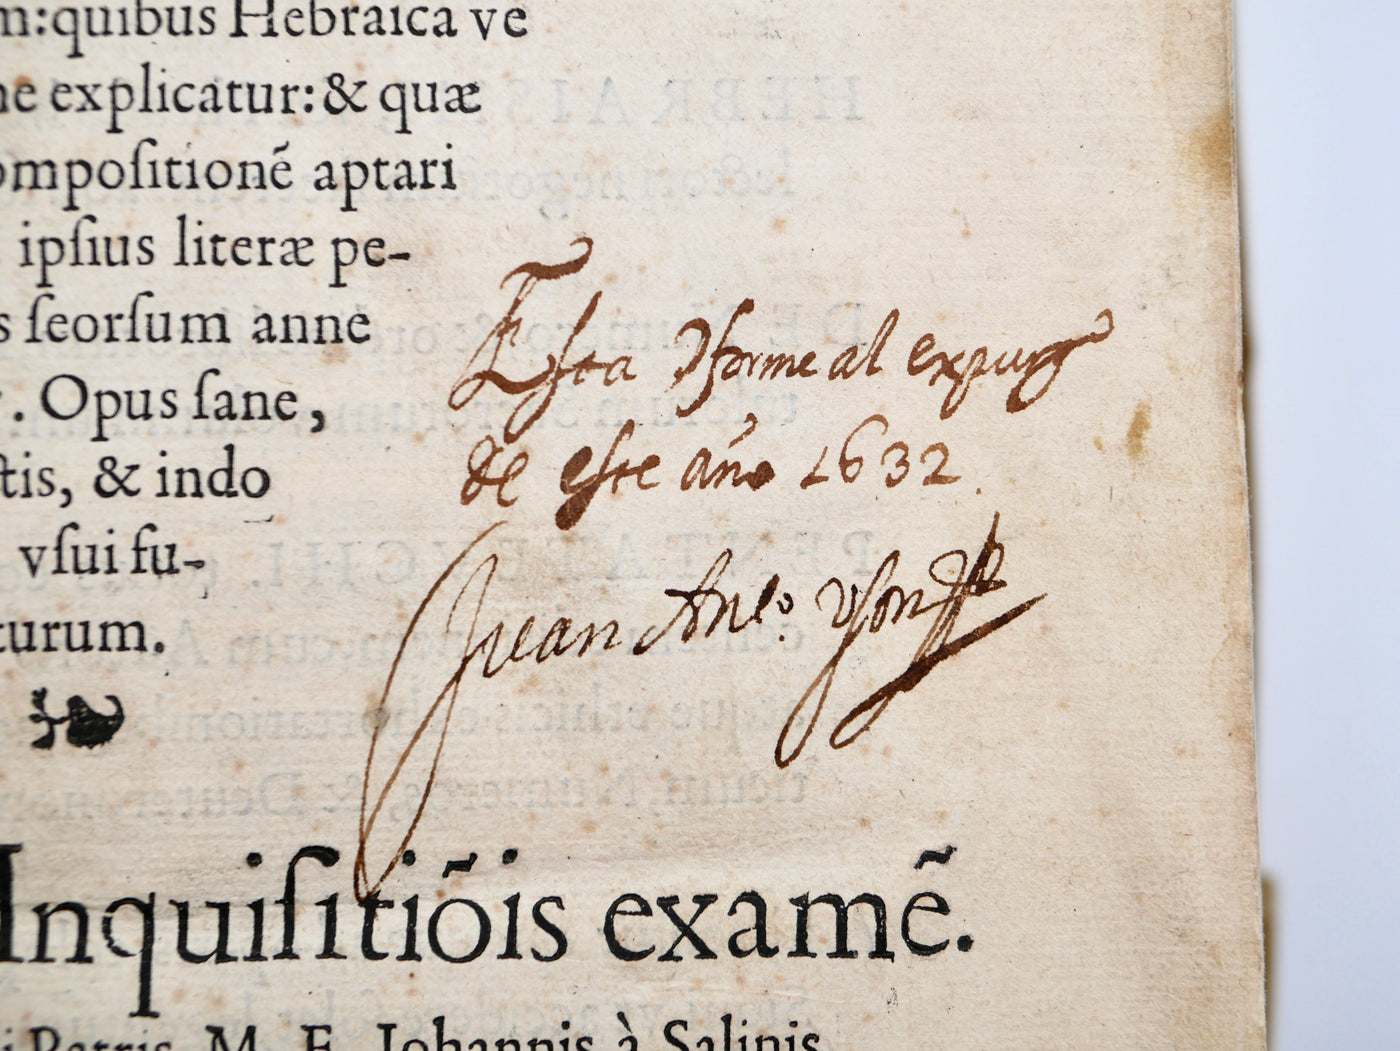 m:quibus Hebraica ve
ne explicatur: & quæ
ompoſitionẽ aptari
ipſius literæ pe-
s ſeorſum anne
. Opus ſane,
ſtis, & indo
vſui fu-
turum.
Esta Conforme al expurg
de este año 1632.
Juan Anto.
Inquiſitiõis examẽ.
i Patris, M. F. Iohannis à Salinis